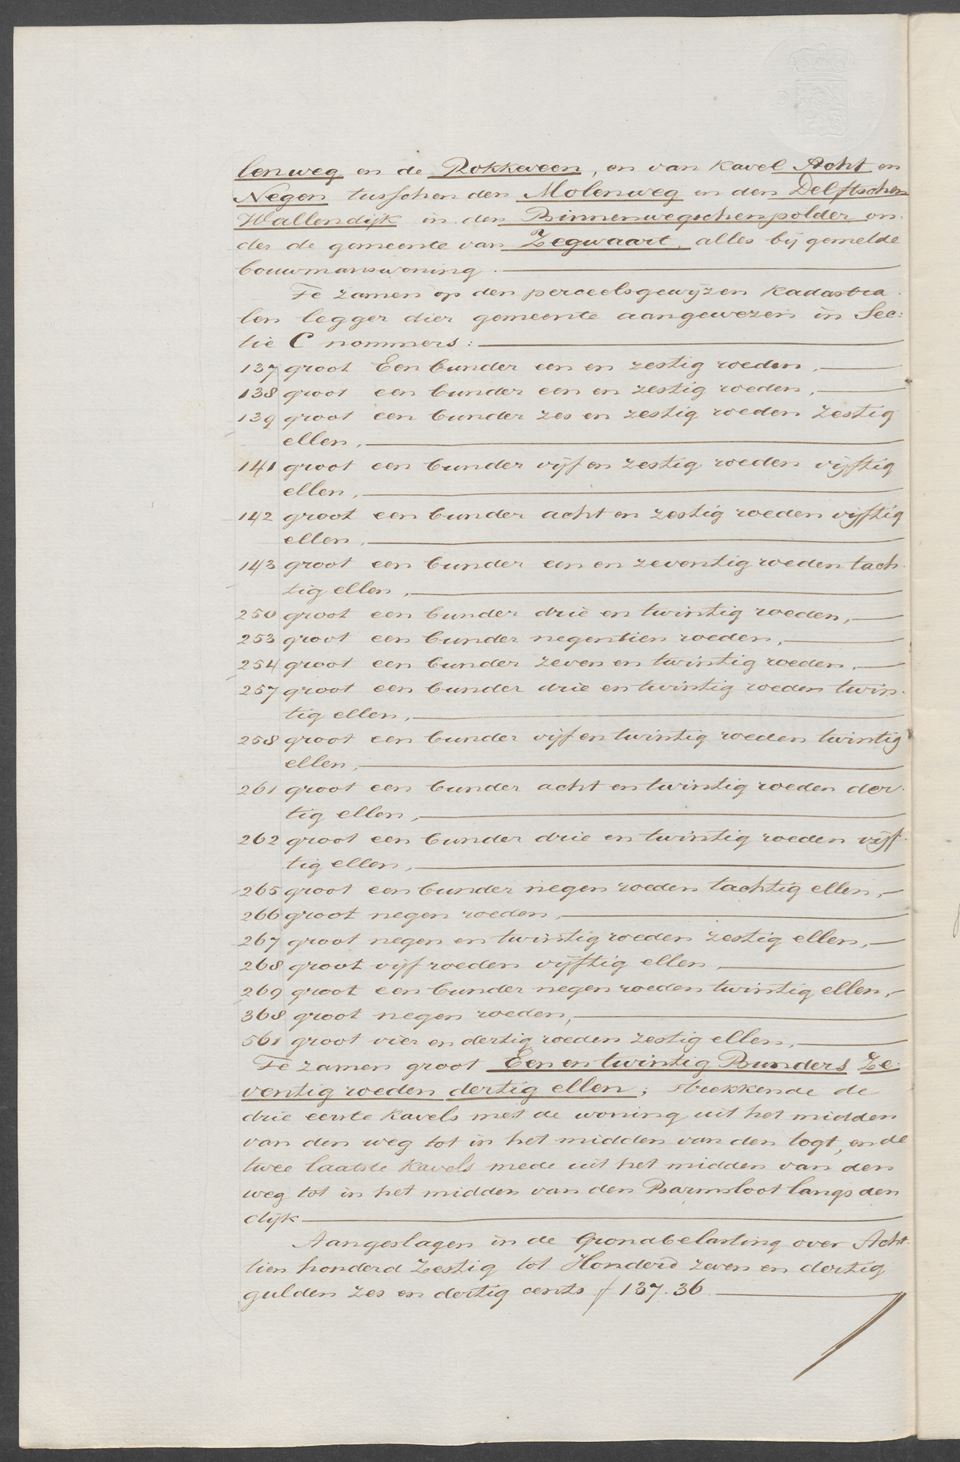 lenweg en de Rokkeveen, en van Kavel Acht en
Negen tusschen den Molenweg en den Delftschen
Wallendijk in den Binnenwegschenpolder on-
der de gemeente van Zegwaart, alles bij gemelde
bouwmanswoning.
Te zamen op den perceelsgewijzen kadastra-
len legger dier gemeente aangewezen in Sec-
tie C nommers:
137 groot Een bunder een en zestig roeden,
138 groot een bunder een en zestig roeden,
139 groot een bunder zes en zestig roeden zestig
ellen,
141 groot een bunder vijf en zestig roeden vijftig
ellen,
142 groot een bunder acht en zestig roeden vijftig
ellen,
143 groot een bunder een en zeventig roeden tach-
tig ellen,
250 groot een bunder drie en twintig roeden,
253 groot een bunder negentien roeden,
254 groot een bunder zeven en twintig roeden,
257 groot een bunder drie en twintig roeden twin-
tig ellen,
258 groot een bunder vijf en twintig roeden twintig
ellen,
261 groot een bunder acht en twintig roeden der-
tig ellen,
262 groot een bunder drie en twintig roeden vijf-
tig ellen,
265 groot een bunder negen roeden tachtig ellen,
266 groot negen roeden,
267 groot negen en twintig roeden zestig ellen,
268 groot vijf roeden vijftig ellen
269 groot een bunder negen roeden twintig ellen,
368 groot negen roeden,
561 groot vier en dertig roeden zestig ellen,
Te zamen groot Een en twintig Bunders Ze-
ventig roeden dertig ellen; strekkende de
drie eerste Kavels met de woning uit het midden
van den weg tot in het midden van den togt, en de
twee laatste Kavels mede uit het midden van den
weg tot in het midden van den Barmsloot langs den
dijk
Aangeslagen in de Grondbelasting over Acht-
tien honderd Zestig tot Honderd zeven en dertig
gulden zes en dertig cents f 137.36